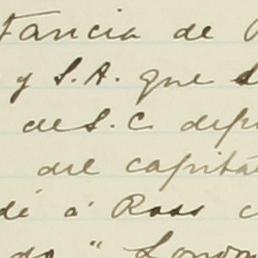 tancia de
y S.A. que
de S. C. dep
del capita
dé á Ross c
do " London